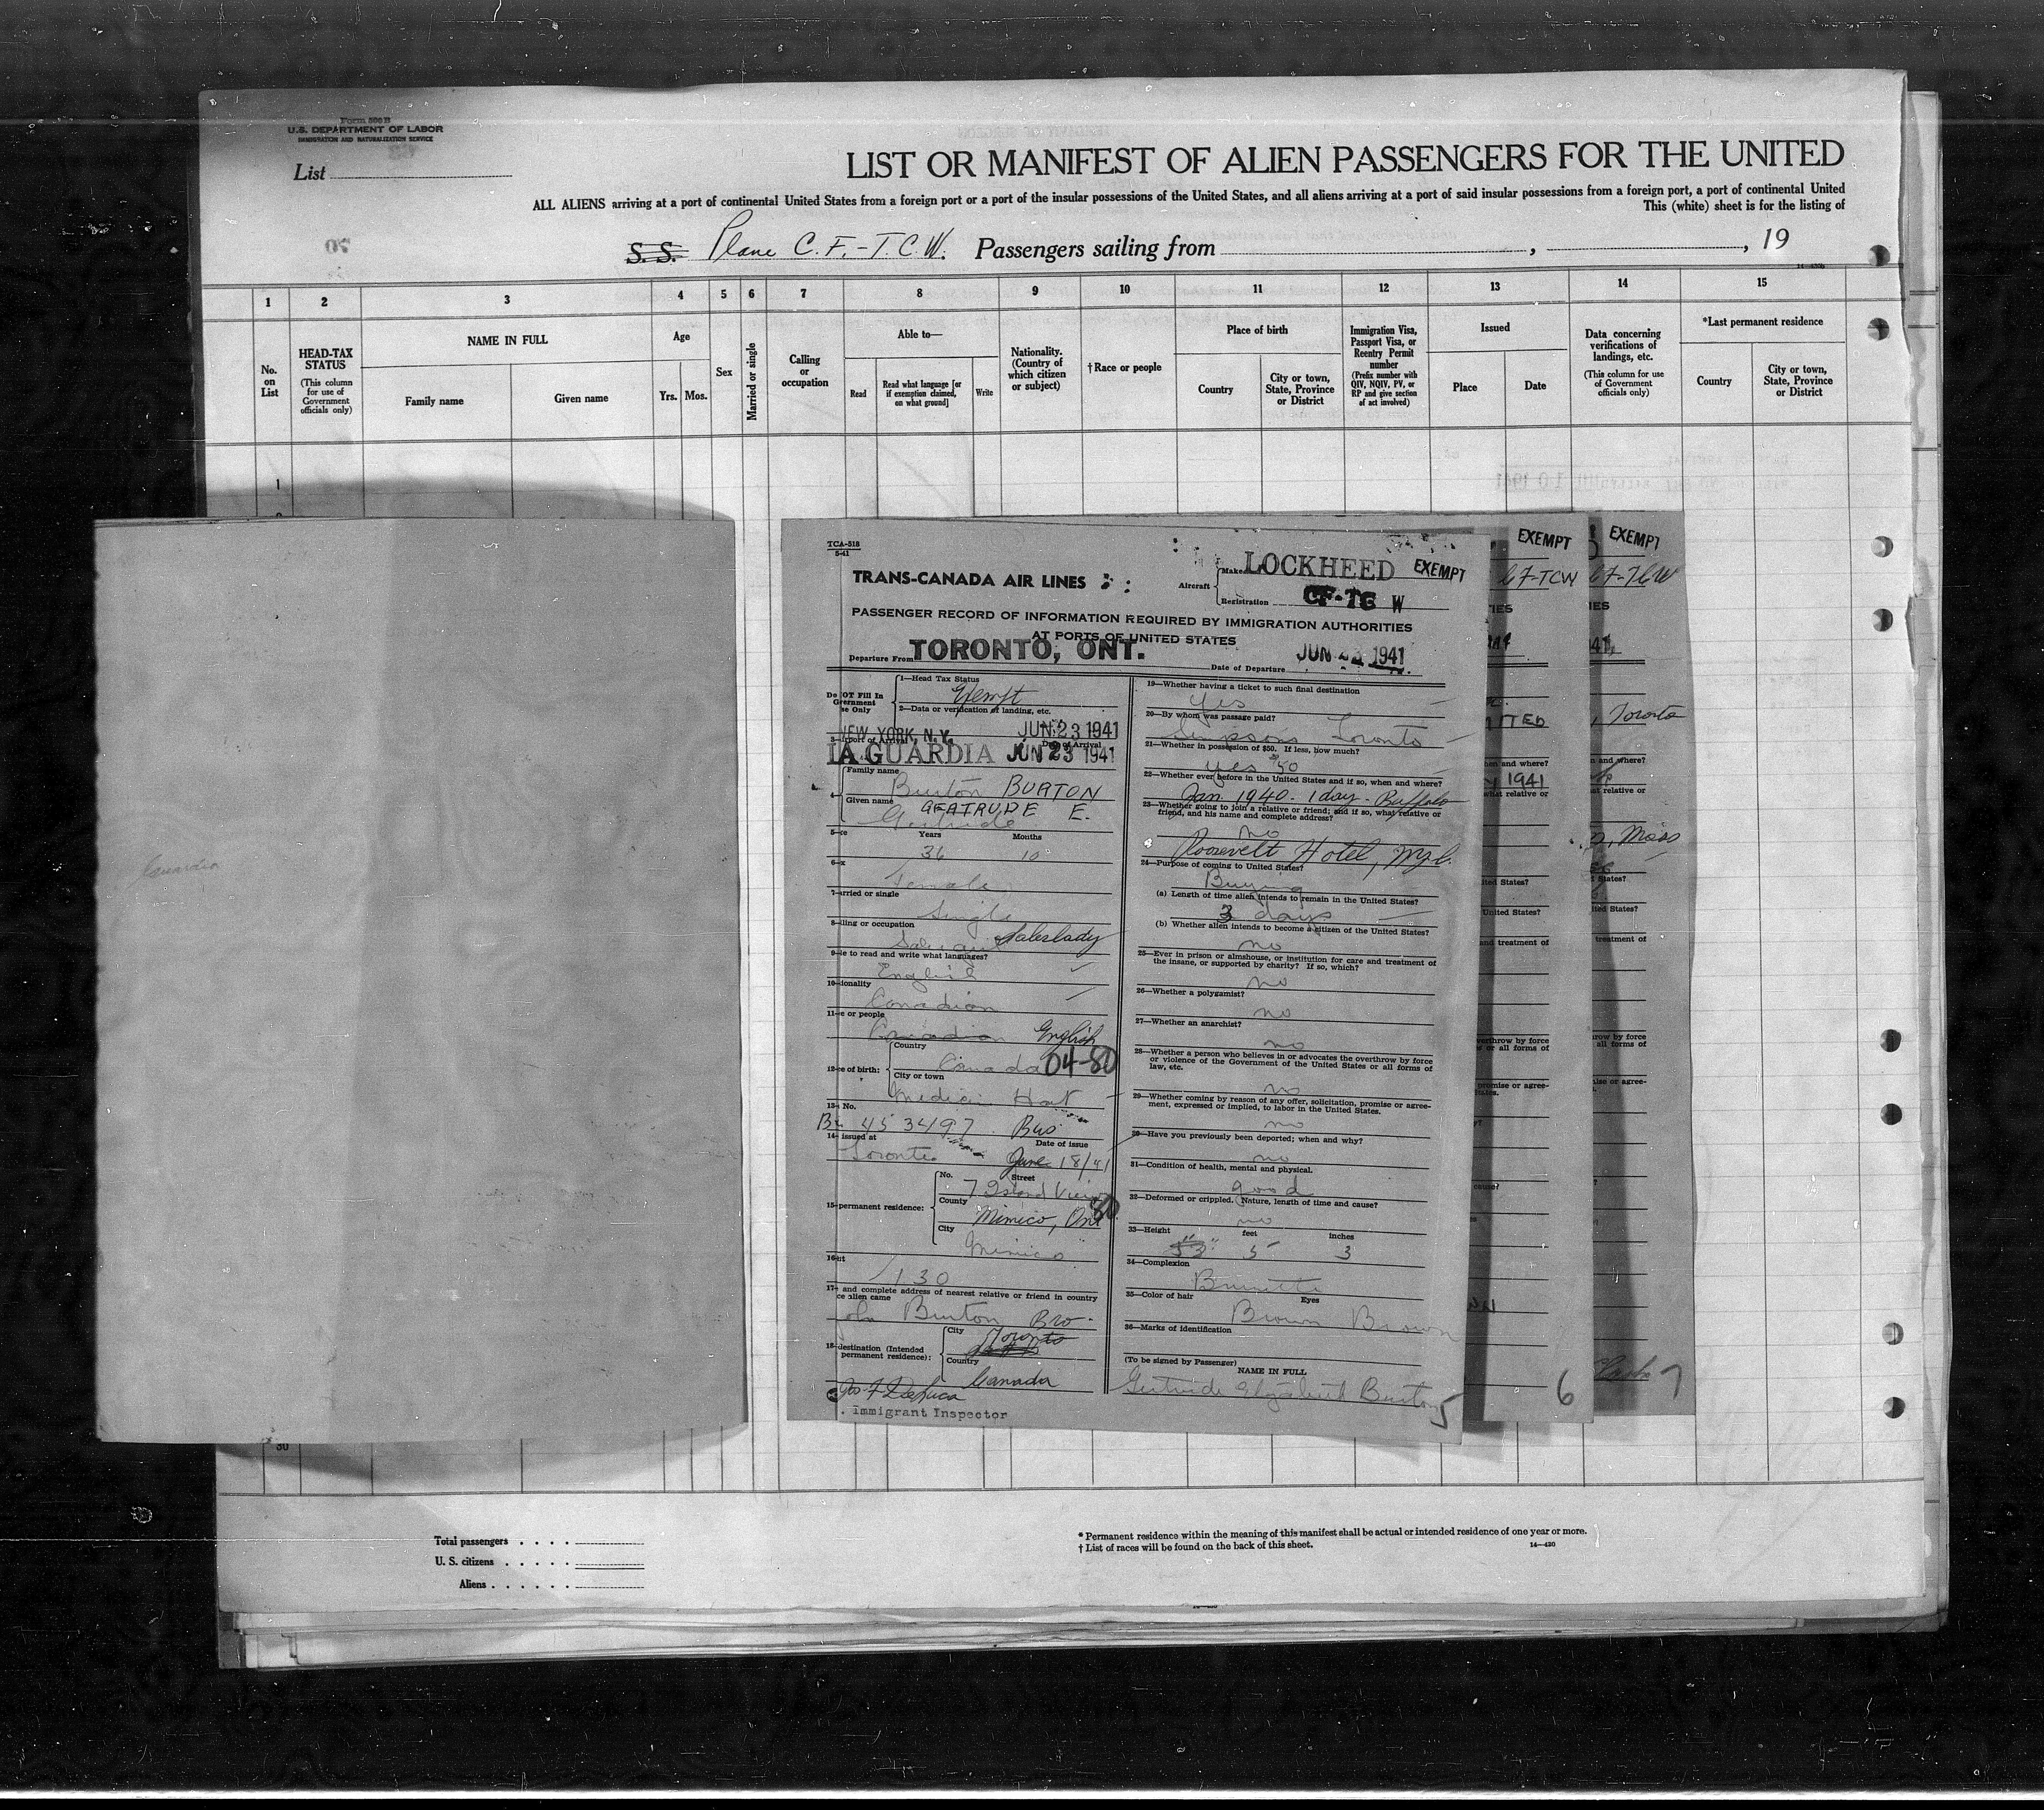 Form 500 B
U.S. DEPARTMENT OF LABOR
IMMIGRATION AND NATURALIZATION SERVICE
List
LIST OR MANIFEST OF ALIEN PASSENGERS FOR THE UNITED
ALL ALIENS arriving at a port of continental United States from a foreign port or a port of the insular possessions of the United States, and all aliens arriving at a port of said insular possessions from a foreign port, a port of continental United
This (white) sheet is for the listing of
S. S. Plane C.F.-T.C.W. Passengers sailing from , , 19
1 2 3 4 5 6 7 8 9 10 11 12 13 14 15
No. on List
HEAD-TAX STATUS
(This column for use of Government officials only)
NAME IN FULL
Family name
Given name
Age
Yrs. Mos.
Sex
Married or single
Calling or occupation
Able to—
Read
Read what language [or if exemption claimed, on what ground]
Write
Nationality. (Country of which citizen or subject)
†Race or people
Place of birth
Country
City or town, State, Province or District
Immigration Visa, Passport Visa, or Reentry Permit number
(Prefix number with QIV, NQIV, PV, or RP and give section of act involved)
Issued
Place
Date
Data concerning verifications of landings, etc.
(This column for use of Government officials only)
*Last permanent residence
Country
City or town, State, Province or District
1
TCA-518
5-41
TRANS-CANADA AIR LINES
Aircraft Make LOCKHEED EXEMPT
Registration CF-TC W
PASSENGER RECORD OF INFORMATION REQUIRED BY IMMIGRATION AUTHORITIES
AT PORTS OF UNITED STATES
Departure From TORONTO, ONT. Date of Departure JUN 23 1941
1—Head Tax Status
Exempt
2—Data or verification of landing, etc.
NEW YORK, N.Y. JUN 23 1941
LA GUARDIA JUN 23 1941
Family name
Burton BURTON
Given name
GERTRUDE E.
Gertrude
Years Months
36 10
Female
7—arried or single
Single
8—lling or occupation
Saleslady
9—le to read and write what languages?
English
10—tionality
Canadian
11—e or people
Canadian English
Country
Canada 04-80
12—ce of birth:
City or town
Medicine Hat
13— No.
45 3497 Bus
14— issued at Date of issue
Toronto June 18/41
No. Street
7 Island View
15—permanent residence:
County
Mimico, Ont 80
City
Mimico
130
17— and complete address of nearest relative or friend in country
ce alien came
John Burton Bro.
18—destination (Intended permanent residence):
City
Toronto
Country
Canada
. Immigrant Inspector
19—Whether having a ticket to such final destination
Yes
20—By whom was passage paid?
Simpsons Toronto
21—Whether in possession of $50. If less, how much?
yes $50
22—Whether ever before in the United States and if so, when and where?
Jan. 1940. 1 day - Buffalo
23—Whether going to join a relative or friend; and if so, what relative or
friend, and his name and complete address?
no
Roosevelt Hotel, Nyc.
24—Purpose of coming to United States?
Buying
(a) Length of time alien intends to remain in the United States?
3 days
(b) Whether alien intends to become a citizen of the United States?
no
25—Ever in prison or almshouse, or institution for care and treatment of
the insane, or supported by charity? If so, which?
no
26—Whether a polygamist?
no
27—Whether an anarchist?
no
28—Whether a person who believes in or advocates the overthrow by force
or violence of the Government of the United States or all forms of
law, etc.
no
29—Whether coming by reason of any offer, solicitation, promise or agree-
ment, expressed or implied, to labor in the United States.
no
30—Have you previously been deported; when and why?
no
31—Condition of health, mental and physical.
good
32—Deformed or crippled. (Nature, length of time and cause?
no
33—Height feet inches
5 3
34—Complexion
Brunette
35—Color of hair Eyes
Brown Brown
36—Marks of identification
(To be signed by Passenger)
NAME IN FULL
Gertrude Elizabeth Burton
5
EXEMPT
CF-TCW
1941
6
EXEMPT
CF-TCW
Toronto
Mass
7
30
Total passengers
U. S. citizens
Aliens
* Permanent residence within the meaning of this manifest shall be actual or intended residence of one year or more.
† List of races will be found on the back of this sheet.
14—430